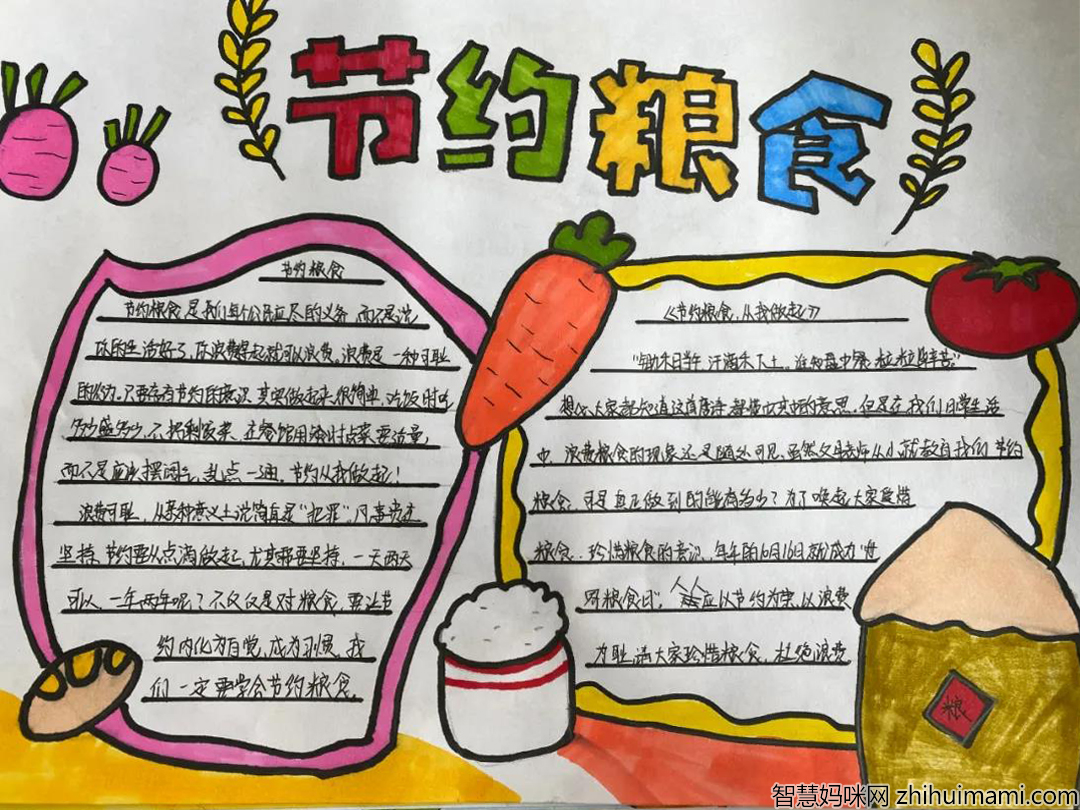 节约粮食
节约粮食
节约粮食是我们每个公民应尽的义务,而不是说
你的生活好了,你浪费得起就可以浪费,浪费是一种可耻
的行为。只要存有节约的意识,其实做起来很简单,吃饭时吃
多少盛多少,不把剩饭菜,在餐馆用餐时点菜要适量,
而不是摆阔气,乱点一通,节约从我做起!
浪费可耻,从某种意义上说简直是“犯罪”凡事贵在
坚持,节约要从点滴做起,尤其需要坚持,一天两天
可以,一年两年呢?不仅仅是对粮食,要让节
约内化为自觉,成为习惯,我
们一定要学会节约粮食。
《节约粮食,从我做起》
“锄禾日当午,汗滴禾下土,谁知盘中餐,粒粒皆辛苦”
想必大家都知道这首唐诗,都懂得其中的意思,但是在我们日常生活
中,浪费粮食的现象还是随处可见,虽然父母老师从小就教育我们节约
粮食,可是真正做到的能有多少?为了唤起大家爱惜
粮食、珍惜粮食的意识,每年的10月16日就成为“世
界粮食日”,人人应以节约为荣,以浪费
为耻,请大家珍惜粮食,杜绝浪费
粮
智慧妈咪网 zhihuimami.com